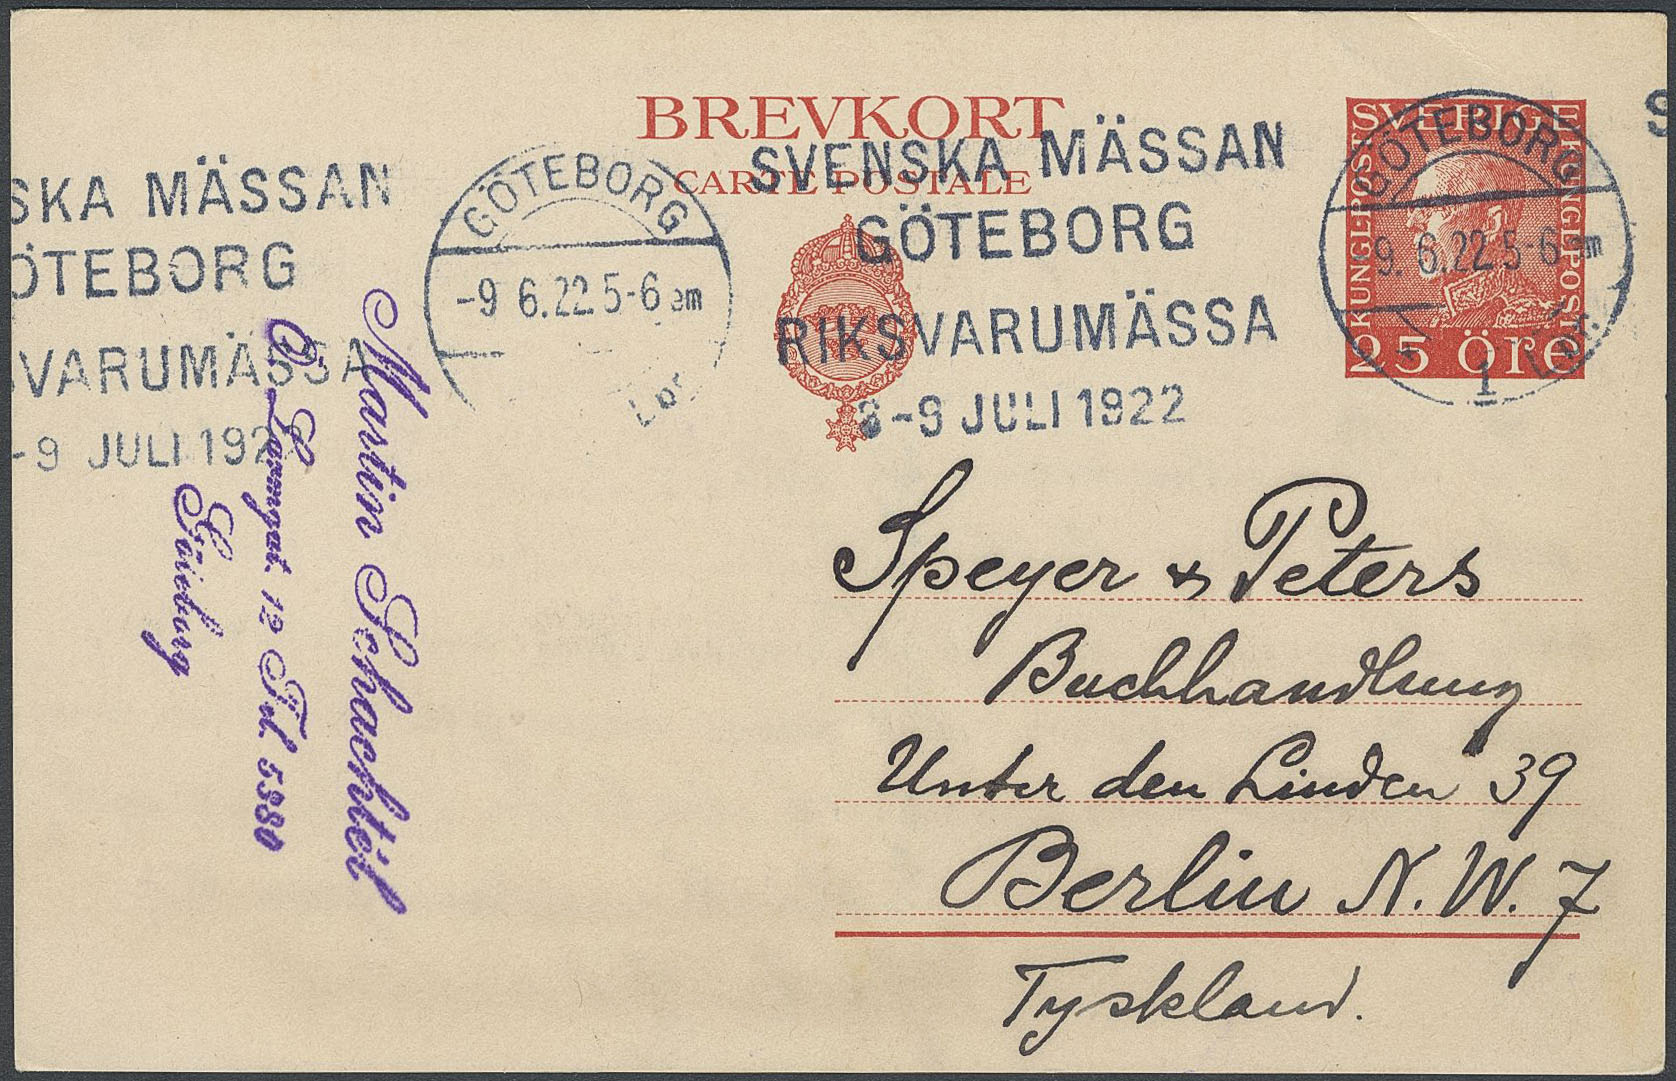 BREVKORT
CARTE POSTALE
SVERIGE
KUNGL POST
KUNGL POST
25 ÖRE
SKA MÄSSAN
ÖTEBORG
SVARUMÄSSA
-9 JULI 1922
GÖTEBORG
-9 6.22.5-6 em
SVENSKA MÄSSAN
GÖTEBORG
RIKSVARUMÄSSA
3-9 JULI 1922
GÖTEBORG
-9. 6.22 5-6 em
1
S
Martin Schachtel
Ö. Larmgat. 12 Tel. 5380
Göteborg
Speyer & Peters
Buchhandlung
Unter den Linden 39
Berlin N.W. 7
Tyskland.